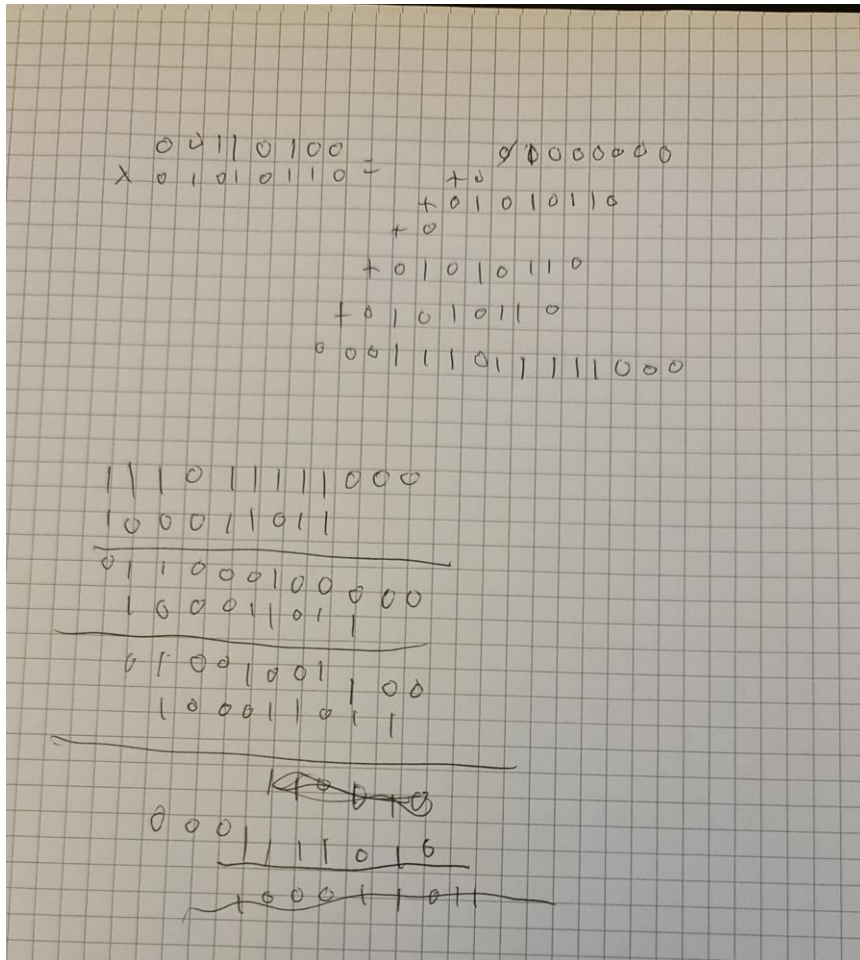 00110100 = 00000000
x 01010110 + 0
+ 01010110
+ 0
+ 01010110
+ 01010110
00011101111 1000
111011111000
100011011
011000100000
100011011
01001001100
100011011
000
1111010
100011011